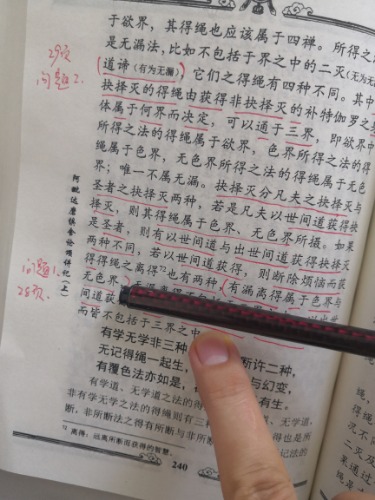 于欲界，其得绳也应该属于四禅。所得之
是无漏法，比如不包括于界之中的二灭（无为无
道谛（有为无漏）它们之得绳有四种不同。其中
抉择灭的得绳由获得非抉择灭的补特伽罗之
体属于何界而决定，可以通于三界，即欲界中
所得之法的得绳属于欲界，色界所得之法的得
绳属于色界，无色界所得之法的得绳属于无色
界；唯一不属无漏。抉择灭分凡夫之抉择灭与
圣者之抉择灭两种，若是凡夫以世间道获得抉
择灭，则其得绳属于色界、无色界所摄。如果
是圣者，则有以世间道与出世间道获得抉择灭
两种不同，若以世间道获得，则断除烦恼而获
得得绳之离得72也有两种（有漏离得属于色界与
无色界
间道获
而皆不包括于三界之中
有学无学非三种 所许二种，
无记得绳一起生， 与幻变，
有覆色法亦如是， 有生。
有学道、无学道之法的得 学道、无学道，
非有学无学之法的得绳则有三种
断，非所断法之得有所断与非所断 得也是所
72 离得：远离所断而获得的智慧。
240
阿毗达磨俱舍论颂讲记（上）
29页
问题2.
问题1.
28页.